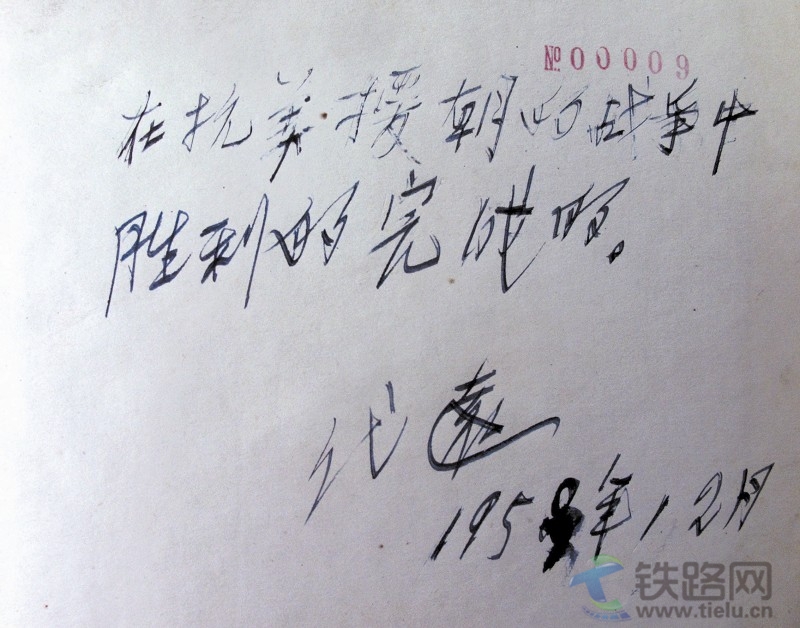 №00009
在抗美援朝的战争中
胜利的完成的。
代远
195 年12月
铁路网
www.tielu.cn